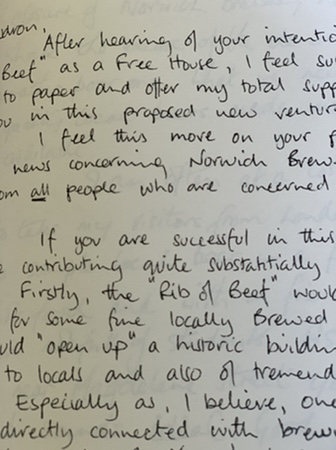 dron,
After hearing of your intentio
Beef" as a Free House, I feel su
to paper and offer my total supp
ou in this proposed new ventur
I feel this more on your p
news concerning Norwich Brew
om all people who are concerned
If you are successful in this
e contributing quite substantially
Firstly, the "Rib of Beef" woul
for some fine locally Brewed
uld "open up" a historic buildin
to locals and also of tremend
Especially as, I believe, one
directly connected with brew